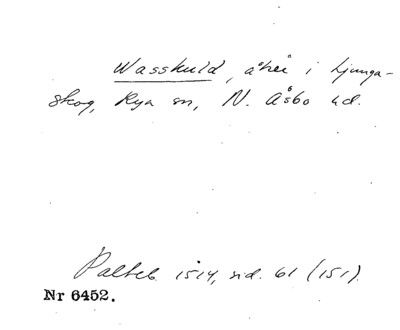 Wasskuld, åker i Ljunga-
skog, Rya sn, N. Åsbo hd.
Palteb. 1514, sid. 61 (151).
Nr 6452.